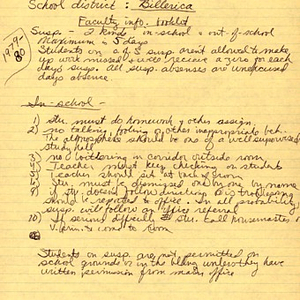 School district : Billerica
Faculty info. booklet
1979-80
Susp. - 2 kinds in-school & out-of-school
Maximum = 5 days
Students on o of S susp. aren't allowed to make
up work missed & will receive a zero for each
days susp. All susp. absences are unexcused
days absence
In-school -
1) stu. must do homework & other assign.
2) no talking, fooling or other inappropriate beh.
The atmosphere should be one of a well supervised
study hall
no loitering in corridor outside room
Teacher must keep checking on students
Teacher should sit at back of room
Stu. must be dismissed one by one by name
If stu. doesn't follow directions or is troublesome
should be reported to office. In all probability
susp. will follow an office referral
10) If serious difficulty & stu. call housemaster
& come to room
Students on susp. are not permitted on
school grounds or in the bldng unless they have
written permission from main office